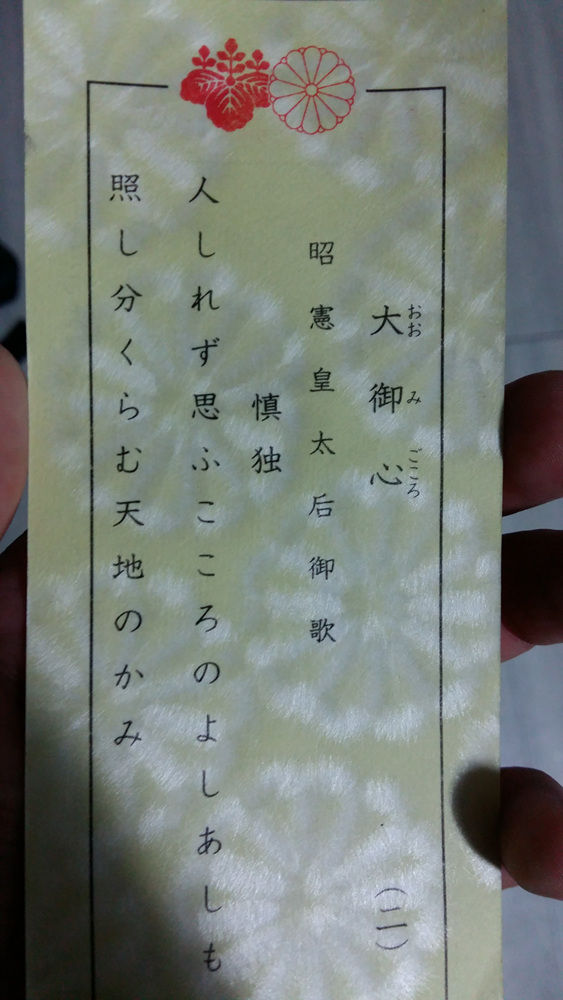 大御心 (二)
おおみごころ
昭憲皇太后御歌
慎独
人しれず思ふこころのよしあしも
照し分くらむ天地のかみ